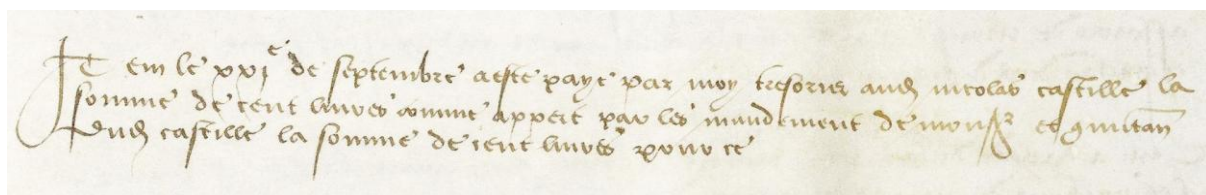 Item le xxie de septembre a este paye par moy tresorier aud nicolas castille la
somme de cent livres comme appert par les mandement de monsgr et quictan
dud castille la somme de cent livres pour ce